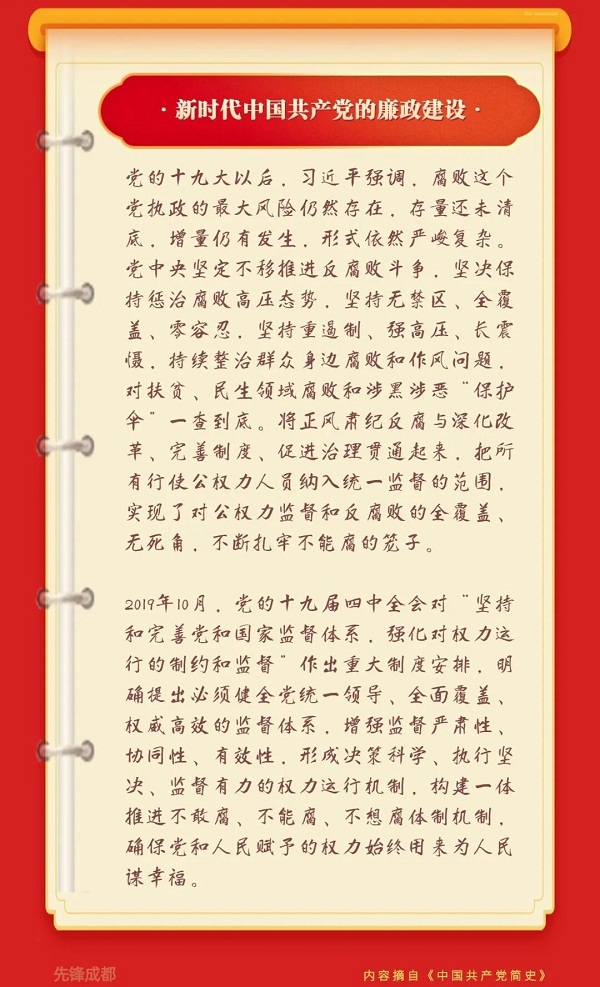 ·新时代中国共产党的廉政建设·
党的十九大以后，习近平强调，腐败这个
党执政的最大风险仍然存在，存量还未清
底，增量仍有发生，形式依然严峻复杂。
党中央坚定不移推进反腐败斗争，坚决保
持惩治腐败高压态势，坚持无禁区、全覆
盖、零容忍，坚持重遏制、强高压、长震
慑，持续整治群众身边腐败和作风问题，
对扶贫、民生领域腐败和涉黑涉恶“保护
伞”一查到底。将正风肃纪反腐与深化改
革、完善制度、促进治理贯通起来，把所
有行使公权力人员纳入统一监督的范围，
实现了对公权力监督和反腐败的全覆盖、
无死角，不断扎牢不能腐的笼子。
2019年10月，党的十九届四中全会对“坚持
和完善党和国家监督体系，强化对权力运
行的制约和监督”作出重大制度安排，明
确提出必须健全党统一领导、全面覆盖、
权威高效的监督体系，增强监督严肃性、
协同性、有效性，形成决策科学、执行坚
决、监督有力的权力运行机制，构建一体
推进不敢腐、不能腐、不想腐体制机制，
确保党和人民赋予的权力始终用来为人民
谋幸福。
先锋成都
内容摘自《中国共产党简史》